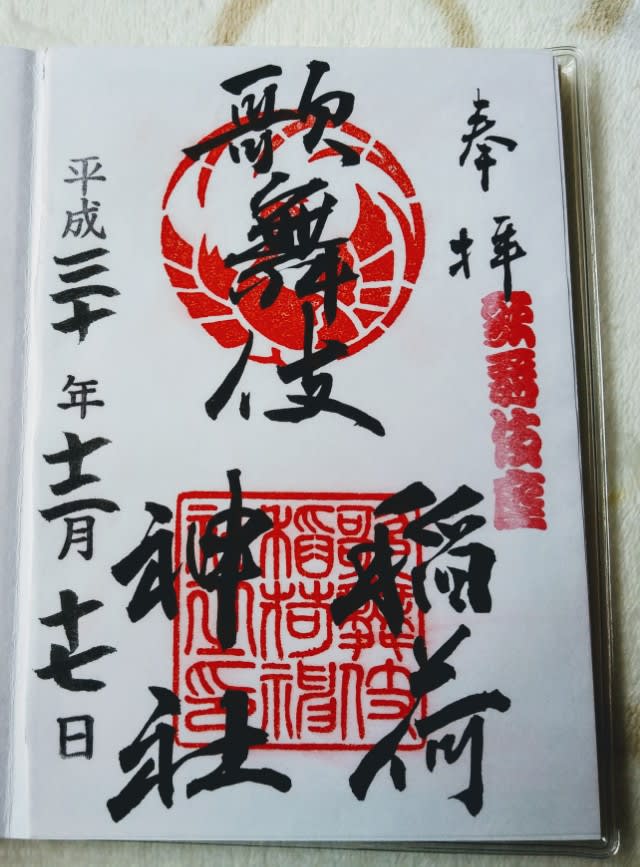 奉拝
歌舞伎座
歌舞伎
稲荷
神社
歌舞伎
稲荷神
社之印
平成三十年十二月十七日